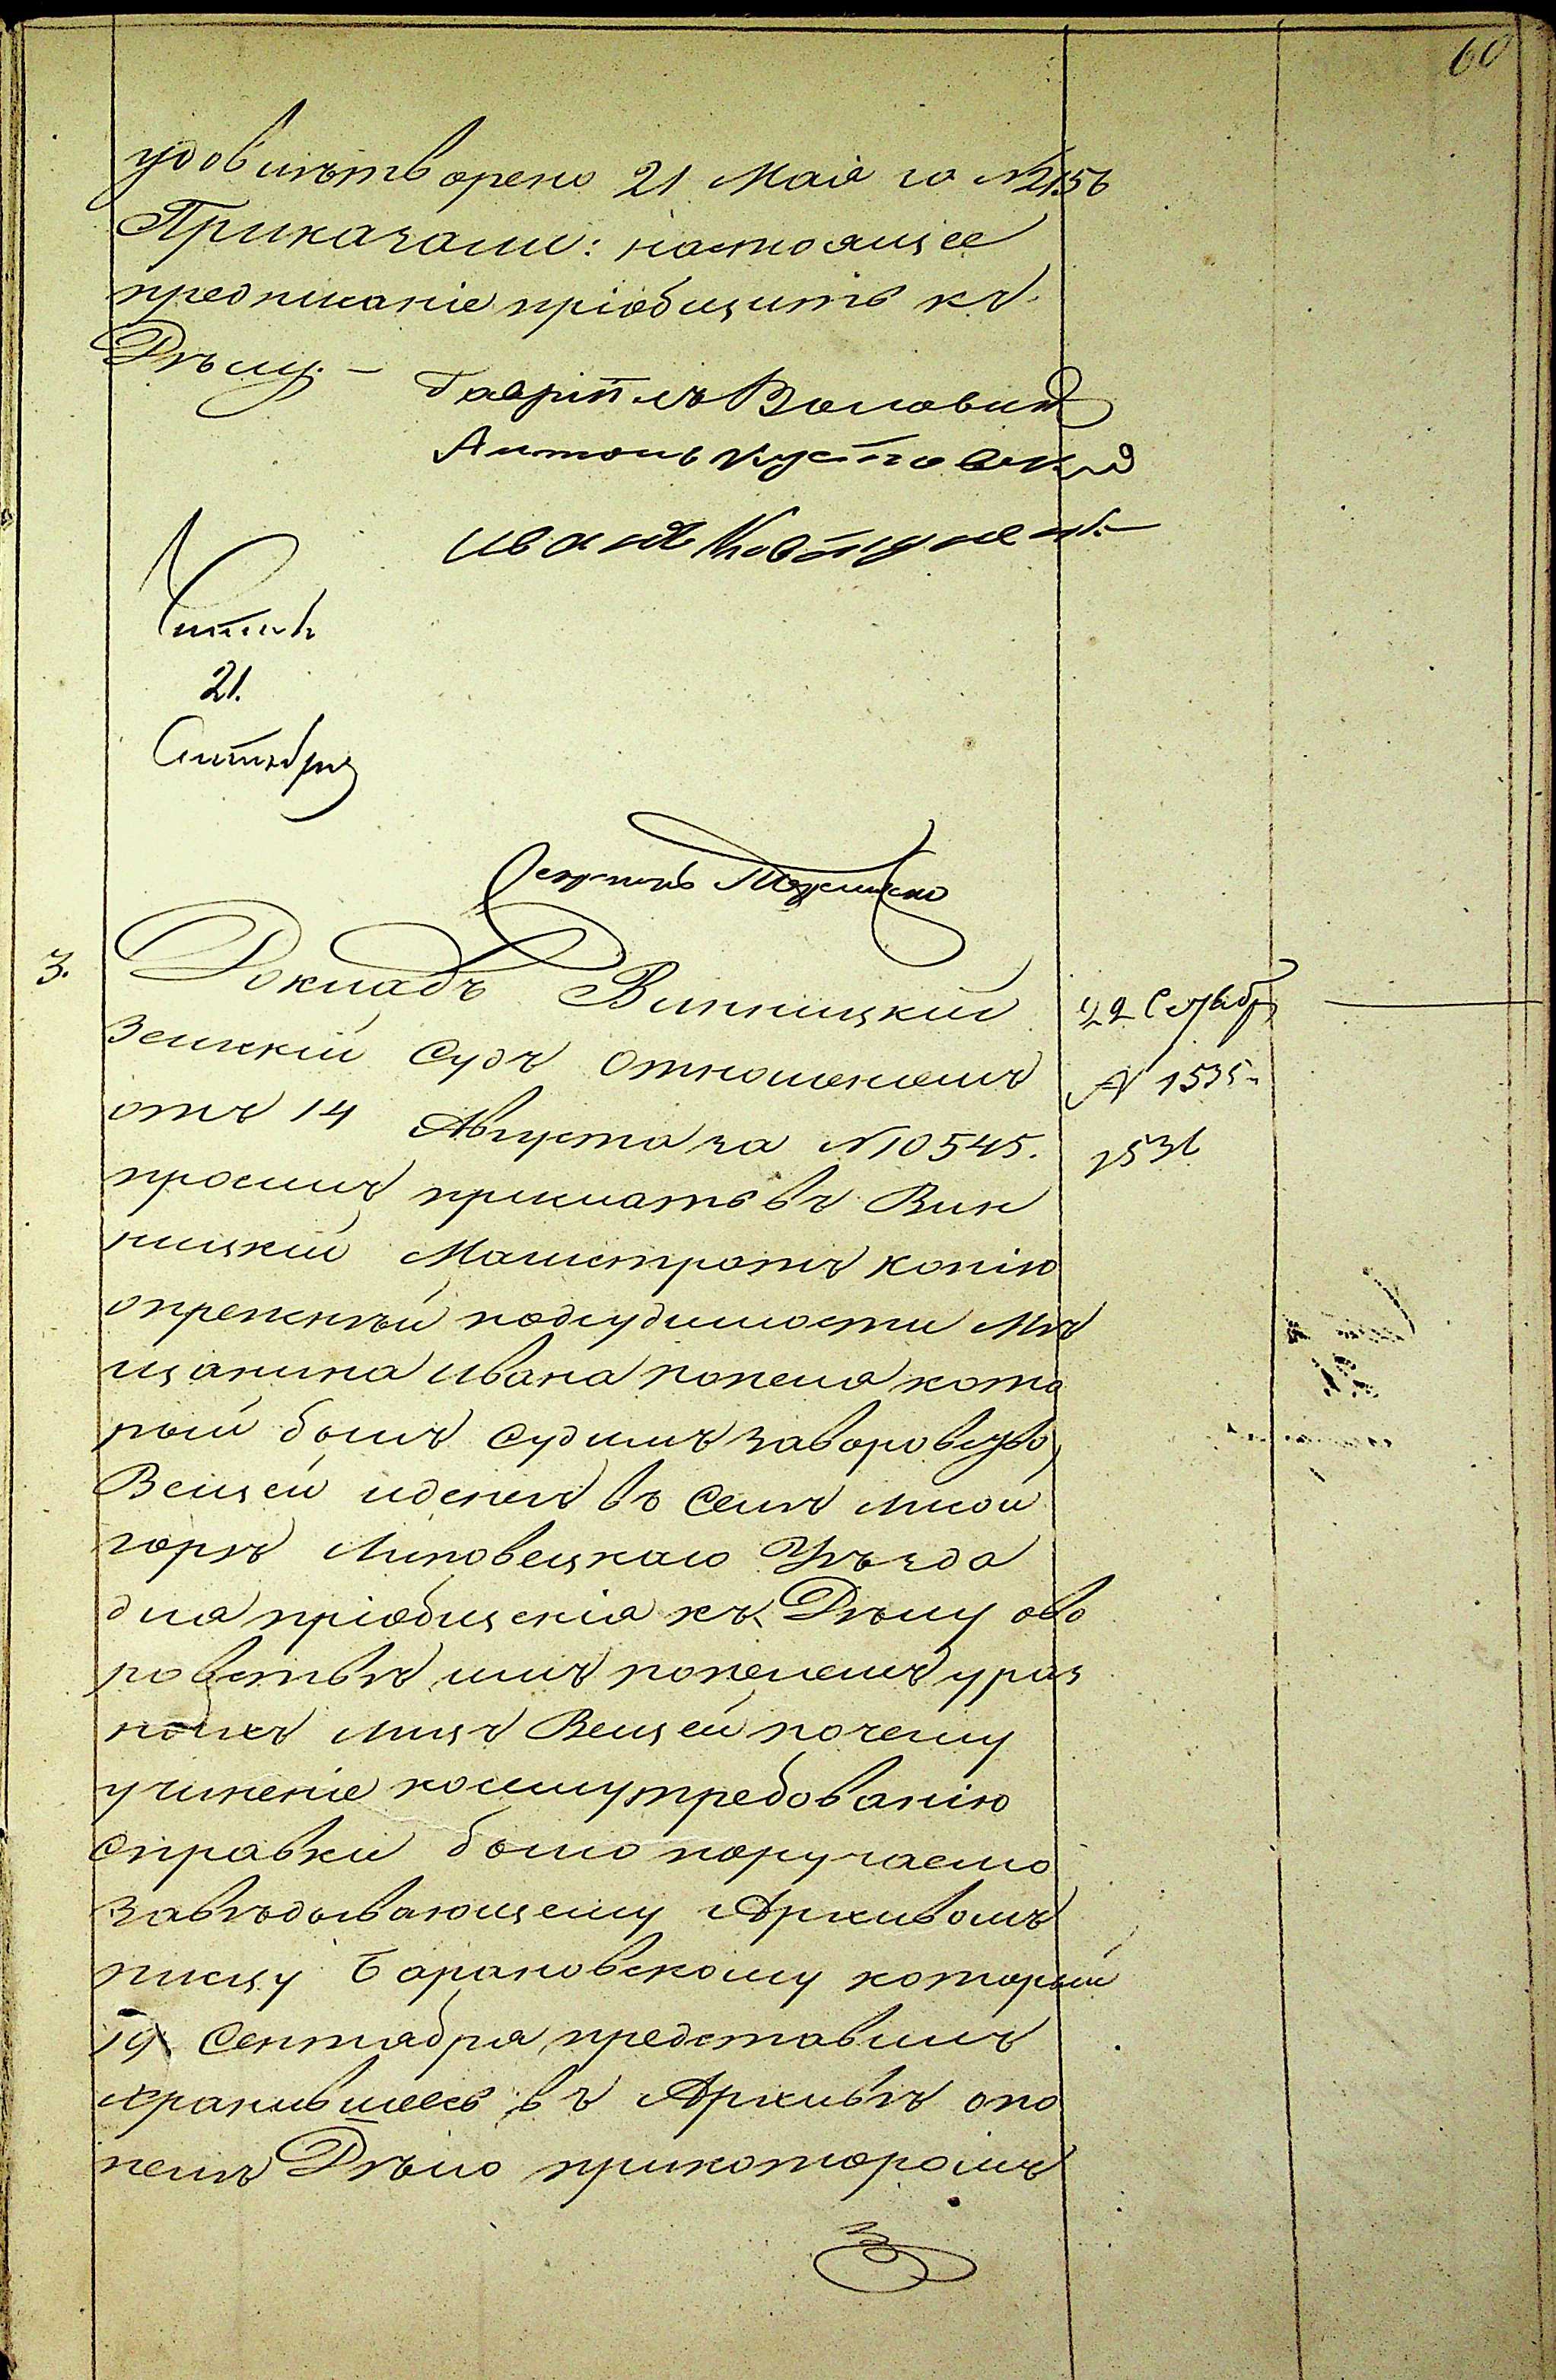 60
удовлѣтворено 21 Мая за №2156
Приказали: настоящее
предписаніе пріобщить къ
Дѣлу. –
Гавріилъ Воловик
Антонъ Кустовскій
Иванъ
Читалъ
21.
Сентября
3.
Докладъ Винницкій
Земскій Судъ отношеніемъ
отъ 14 Августа за №10545.
проситъ прислать въ Вин
ницкій Магистратъ копію
о прежнѣй подсудимости Мѣ
щанина Ивана Попеля кото
рый былъ судимъ заворовство
Вещей иденегъ въ Селѣ Лисой
горѣ Липовецкаго Уѣзда
для пріобщенія къ Дѣлу ово
ровствѣ имъ попелемъураз
ныхъ лицъ Вещей почему
учиненіе посемутребованію
справки было поручаемо
завѣдывающему Архивомъ
писцу Барановскому который
19 Сентября представилъ
хранившеесь въ Архивѣ опо
пелѣ Дѣло прикоторомъ
22 Сентяб
№ 1535
1536